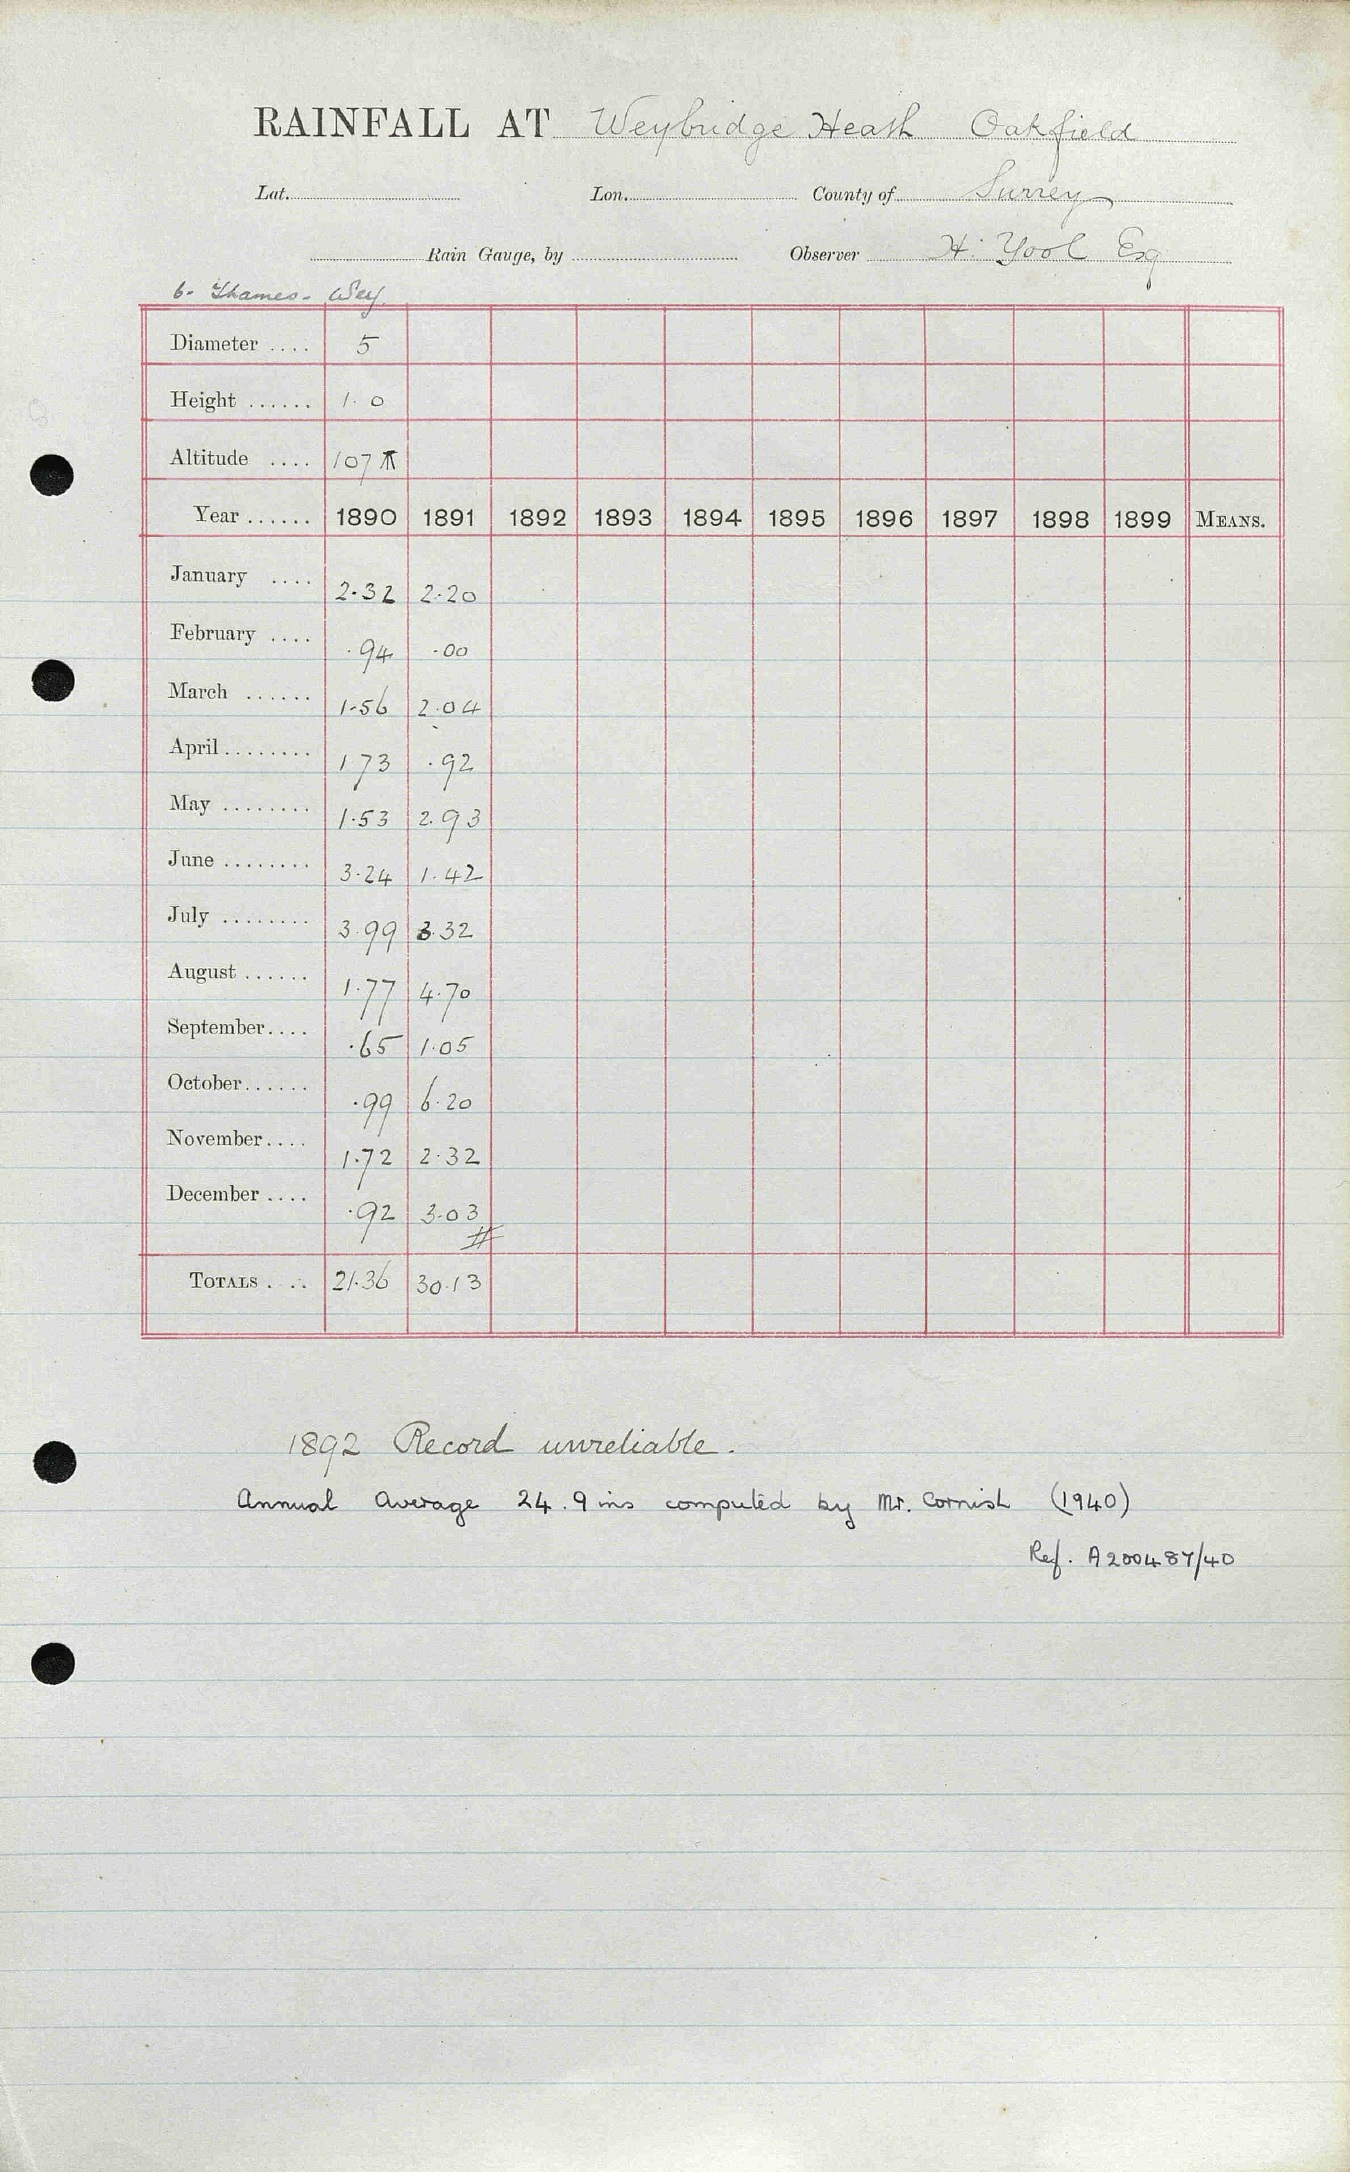 RAINFALL AT Weybridge Heath Oakfield
Lat. Lon. County of Surrey
Rain Gauge, by Observer H. Yool Esq
6- Thames- Wey
Diameter .... 5
Height ...... 1.0
Altitude .... 107
Year ...... 1890 1891 1892 1893 1894 1895 1896 1897 1898 1899 MEANS.
January .... 2.32 2.20
February .... .94 .00
March ...... 1.56 2.04
April ........ 1 73 .92
May ........ 1.53 2.93
June ........ 3.24 1.42
July ........ 3.99 3.32
August ...... 1.77 4.70
September .... .65 1.05
October ...... .99 6.20
November .... 1.72 2.32
December .... .92 3.03
#
TOTALS .... 21.36 30.13
1892 Record unreliable.
Annual Average 24.9 ins computed by Mr. Cornish (1940)
Ref. A200487/40